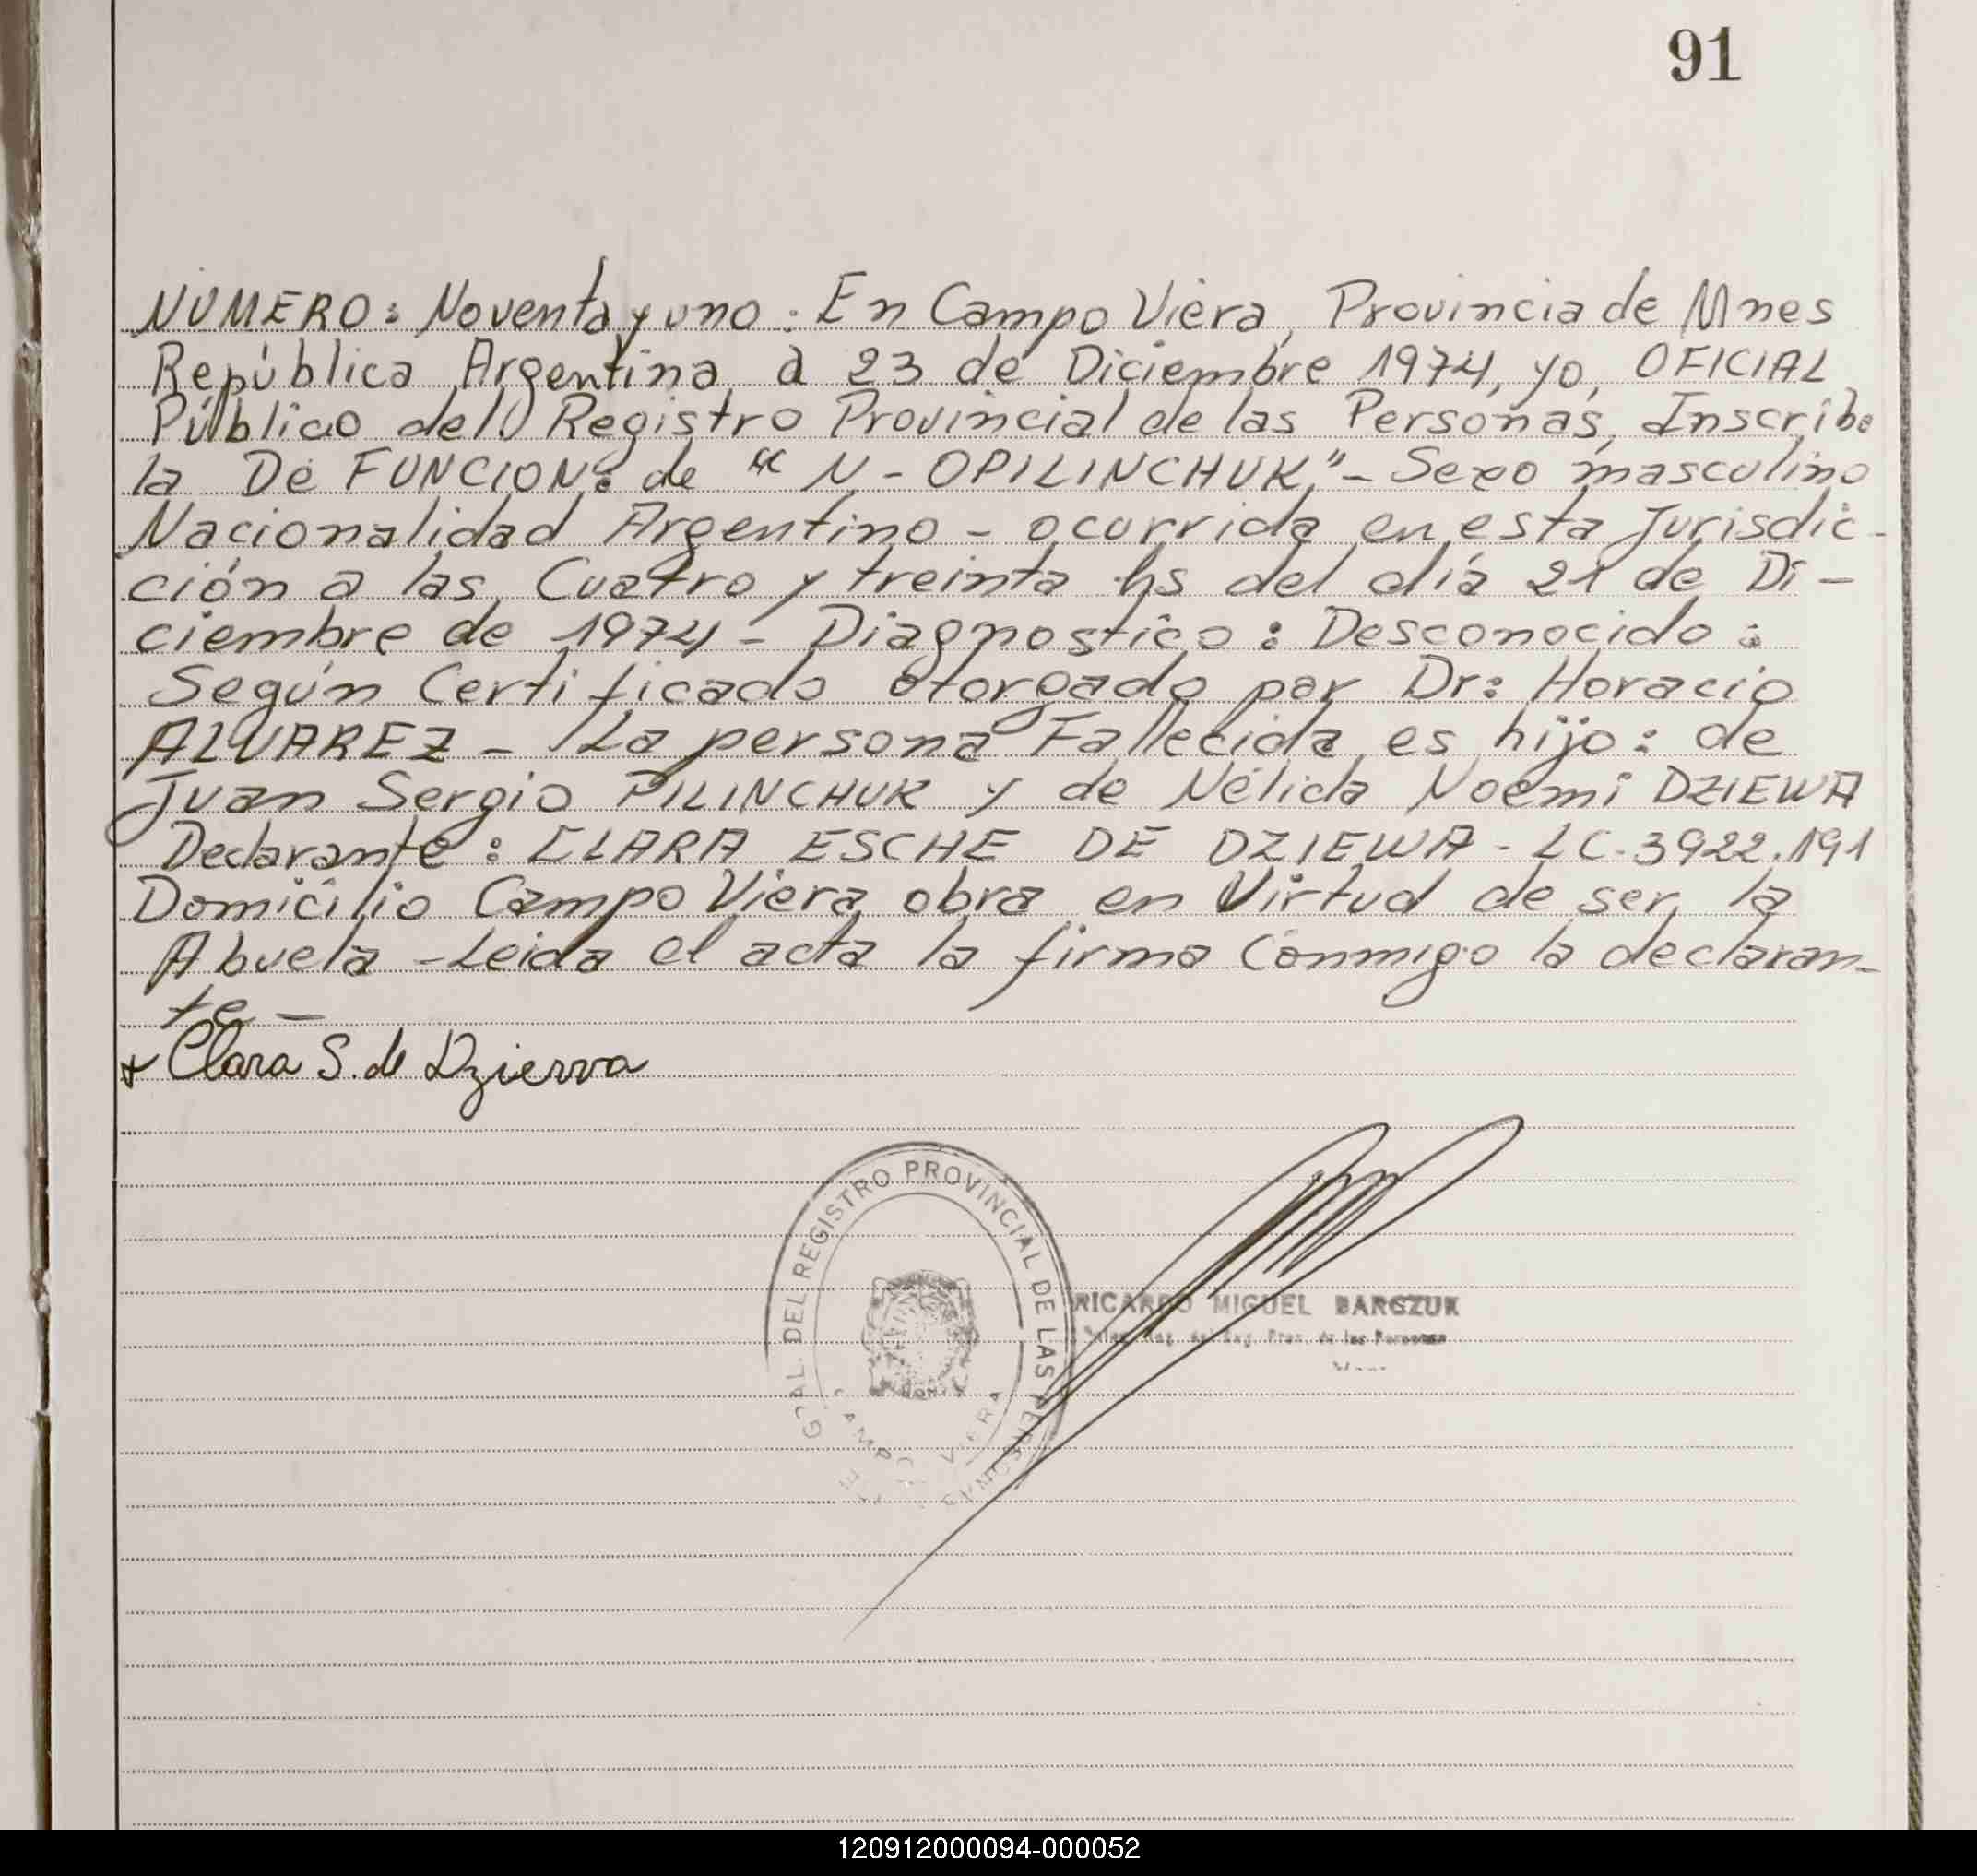 91
NUMERO: Noventa y uno: En Campo Viera, Provincia de Mnes
República Argentina, a 23 de Diciembre 1974, yo, OFICIAL
Público del Registro Provincial de las Personas, Inscribo
la DE FUNCION: de "N - OPILINCHUK" - Sexo masculino
Nacionalidad Argentino - ocurrida en esta Jurisdic-
ción a las Cuatro y treinta hs del día 21 de Di-
ciembre de 1974 - Diagnostico: Desconocido:
Según Certificado otorgado por Dr: Horacio
ALVAREZ - La persona Fallecida es hijo: de
Juan Sergio PILINCHUK y de Nélida Noemi DZIEWA
Declarante: CLARA ESCHE DE DZIEWA - LC. 3922.191
Domicilio Campo Viera obra en Virtud de ser la
Abuela - Leida el acta la firma Conmigo la declaran-
te -
Clara S. de Dzierva
GRAL. DEL REGISTRO PROVINCIAL DE LAS PERSONAS
CAMPO VIERA
RICARDO MIGUEL BARCZUK
Reg. Prov. de las Personas
120912000094-000052